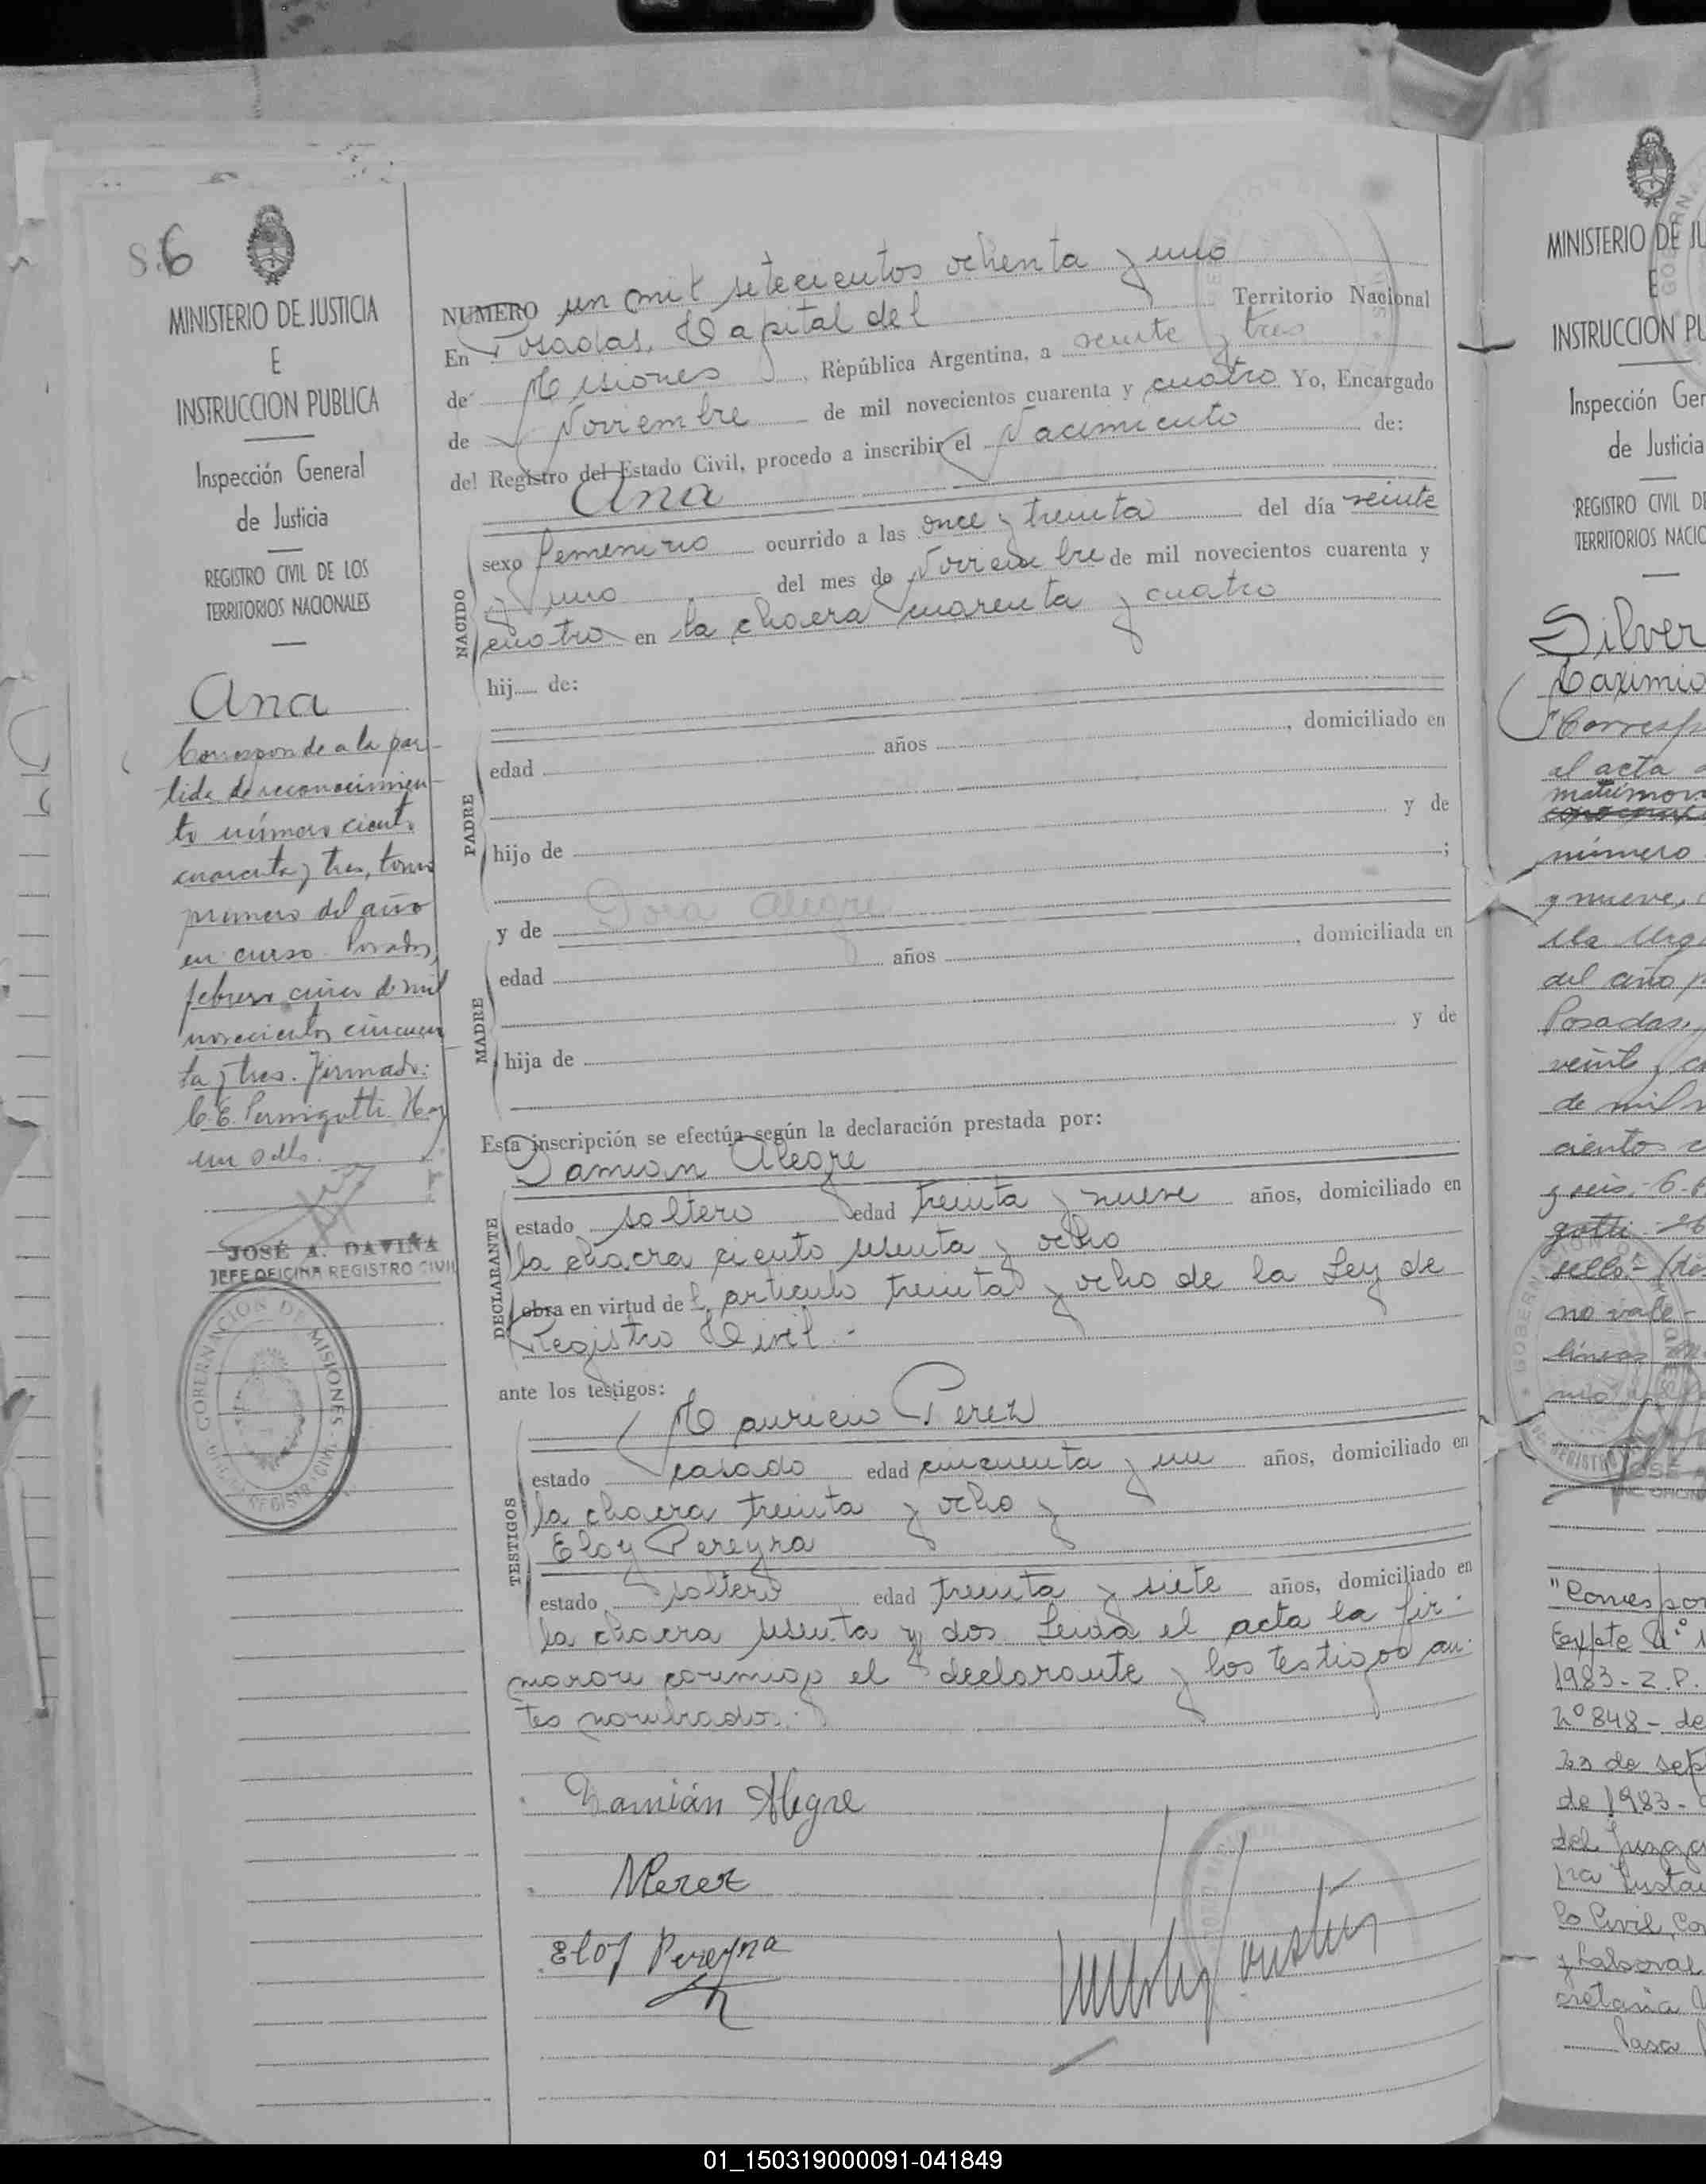 S.6
MINISTERIO DE JUSTICIA
E
INSTRUCCION PUBLICA
Inspección General
de Justicia
REGISTRO CIVIL DE LOS
TERRITORIOS NACIONALES
Ana
Corresponde a la par-
tida de reconocimien-
to número ciento
cuarenta y tres, tomo
primero del año
en curso. Posadas,
febrero cinco de mil
novecientos cincuen
ta y tres. Firmado:
C. E. Pernigotti. Hay
un sello.
JOSÉ A. DAVIÑA
JEFE OFICINA REGISTRO CIVIL
GOBERNACION DE MISIONES
REGISTRO CIVIL
NUMERO un mil setecientos ochenta y uno
En Posadas, Capital del Territorio Nacional
de Misiones, República Argentina, a veinte y tres
de Noviembre de mil novecientos cuarenta y cuatro Yo, Encargado
del Registro del Estado Civil, procedo a inscribir el Nacimiento de:
Ana
NACIDO
sexo femenino ocurrido a las once y treinta del día veinte
y uno del mes de Noviembre de mil novecientos cuarenta y
cuatro en la chacra cuarenta y cuatro
hij de:
PADRE
edad años , domiciliado en
hijo de y de
;
y de Dora Alegre
MADRE
edad años , domiciliada en
hija de y de
Esta inscripción se efectúa según la declaración prestada por:
Damian Alegre
DECLARANTE
estado soltero edad treinta y nueve años, domiciliado en
la chacra ciento sesenta y ocho
obra en virtud del artículo treinta y ocho de la Ley de
Registro Civil.-
ante los testigos:
Mauricio Perez
TESTIGOS
estado casado edad cincuenta y un años, domiciliado en
la chacra treinta y ocho y
Eloy Pereyra
estado soltero edad treinta y siete años, domiciliado en
la chacra sesenta y dos. Leida el acta la fir-
maron conmigo el declarante y los testigos an-
tes nombrados.
Damián Alegre
MPerez
Eloy Pereyra
MINISTERIO DE JU
E
INSTRUCCION PU
Inspección Gen
de Justicia
REGISTRO CIVIL DE
TERRITORIOS NACIO
Silver
Corresp
al acta
matrimon
número
y nueve,
del año p
Posadas,
veinte y
de mil n
cientos c
y seis.-
gotti
sello.-
no vale-
líneas
"Corres pon
Expte N.º 1
1983-Z.P.
Nº 848- de
23 de sep
de 1983-
del Juzga
1ra Insta
lo Civil, Co
y Laboral
cretaria
Pasa
01_150319000091-041849